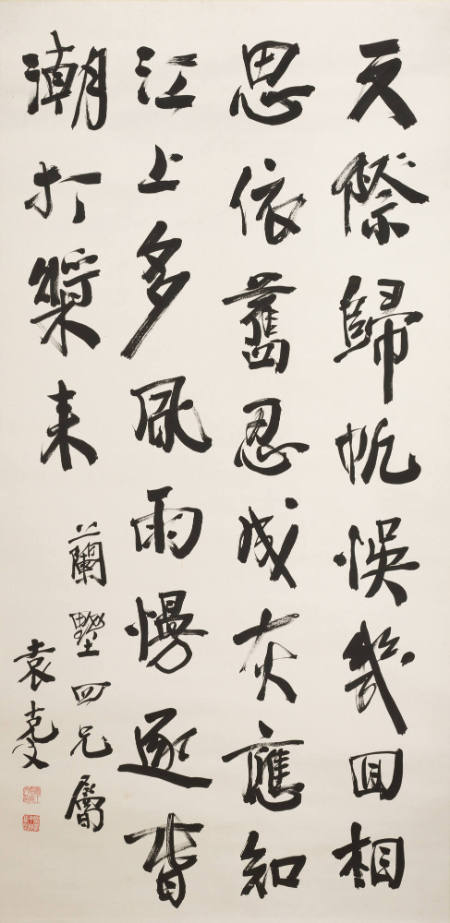 天際歸帆悞幾回相
思依舊忍成灰應知
江上多風雨慢逐胥
潮打槳来
蘭墅四兄屬
袁克文